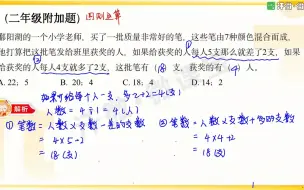 (二年级附加题) 图列运算
鄱阳湖的一个小学老师,买了一批质量非常好的笔。这些笔由7种颜色混合而成。
他打算把这批笔发给班里获奖的人。如果给获奖的人每人5支那么就差了2支,如
果给获奖的人每人4支就多了2支。这批笔有( 18 )支,获奖的有( 4 )人。
A. 22;5 B. 20;4 C. 18;4 D. 14;2
解析
如果开始每个人一支,多2+2=4(支)
人数=4÷1=4(人)
① 笔数=人数×支数-差的支数
=4×5-2
=18(支)
② 笔数=人数×支数+多的支数
=4×4+2
=18(支)